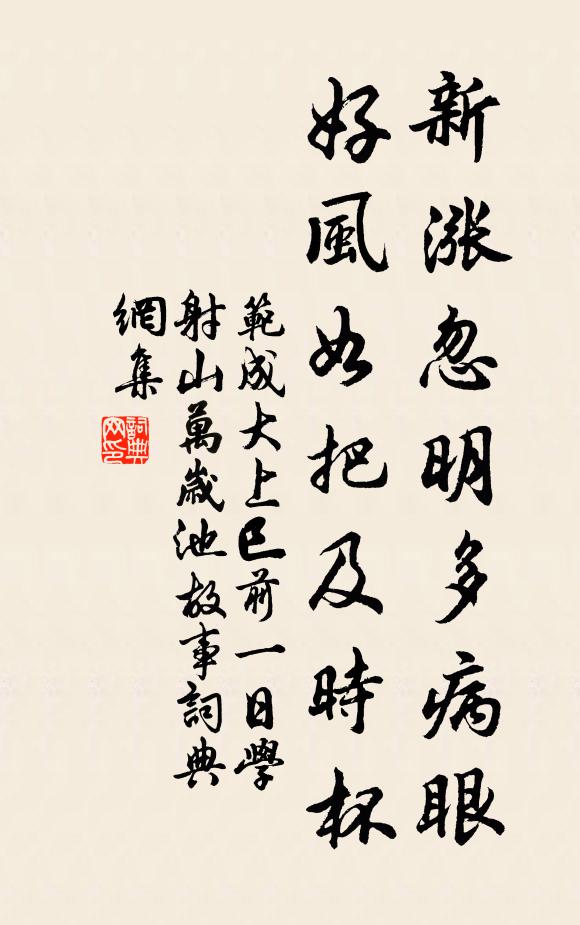 新漲忽明多病眼
好風如把及時杯
範成大上巳前一日學
射山萬歲池故事詞典
網集
詞典
网印